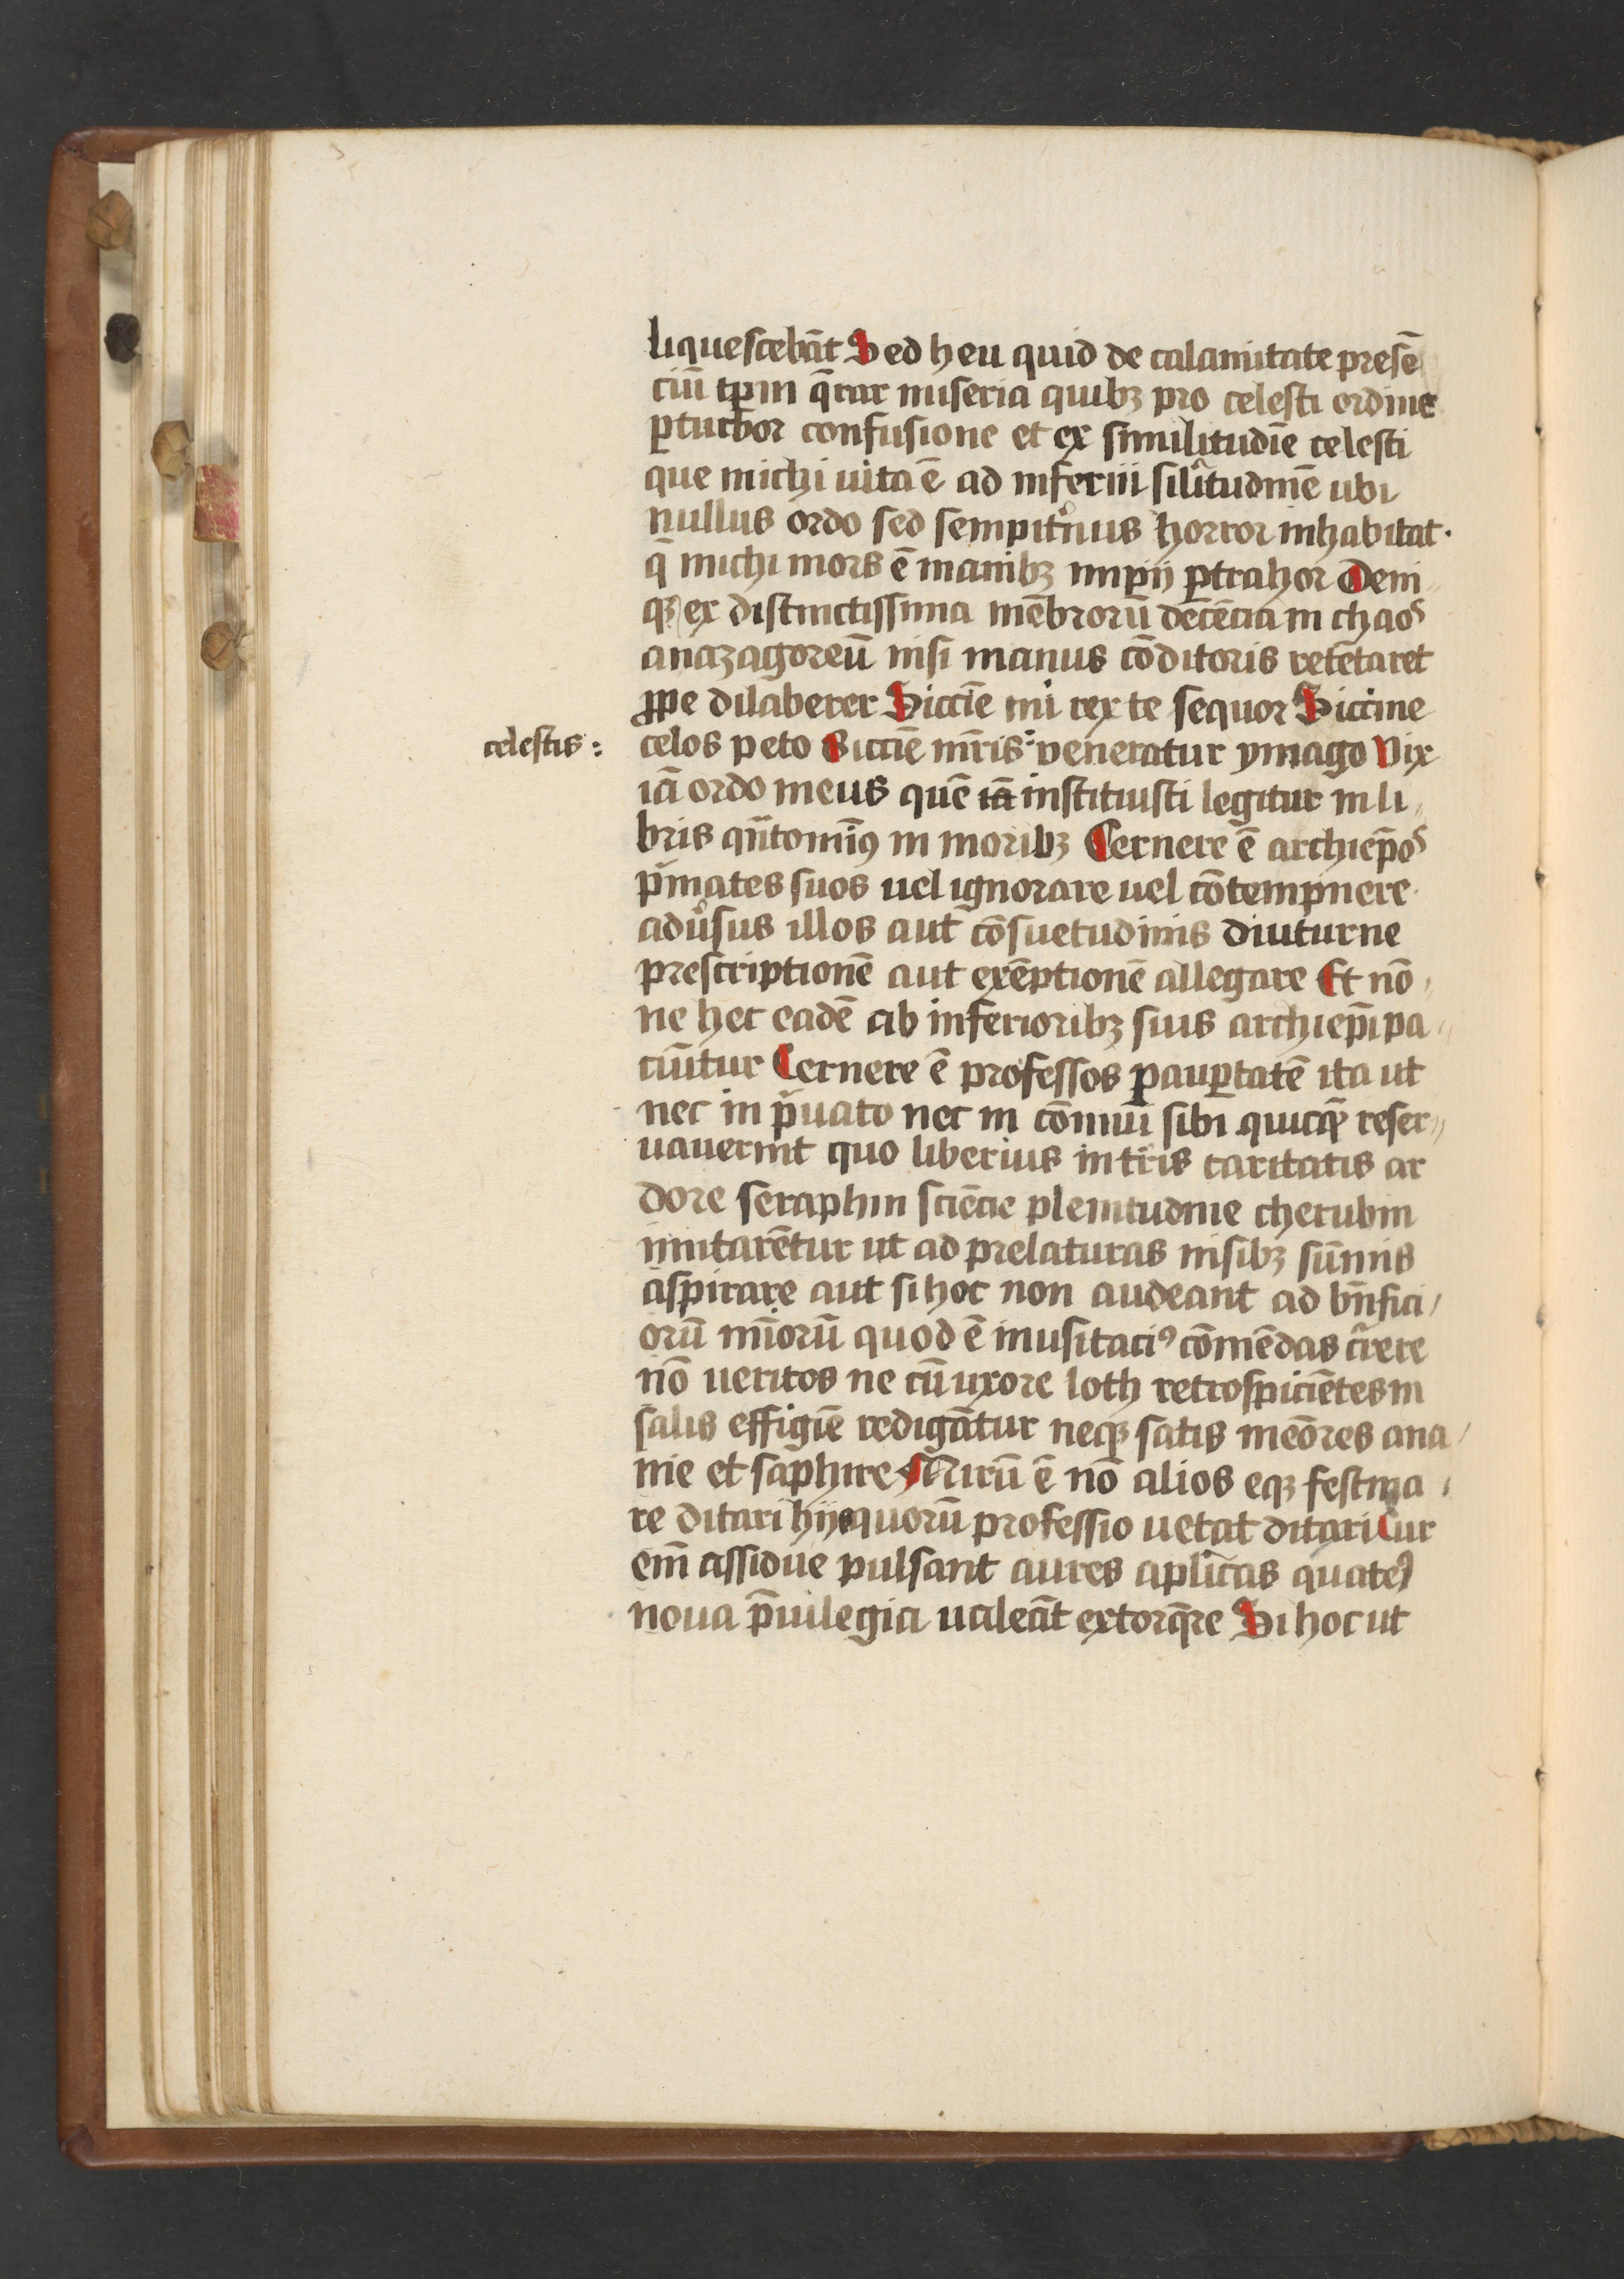 liquescebāt Sed heu quid de calamitate presē
ciū tp̄m q̄rar miseria quibꝫ pro celesti ordine
ꝑturbor confusione et ex similitudīe celesti
que michi uita ē ad inferni silitudinē ubi
nullus ordo sed sempitnus horror inhabitat·
q̄ michi mors ē manibꝫ impij ꝑtrahor Deni
qꝫ ex distinctissima mēbrorū decēcia in chaos
anaxagoreū nisi manus cōditoris retētaret
ꝓpe dilaberer Siccīe mi rex te sequor Siccine
celestis :
celos peto Siccīe mr̄is veneratur ymago Vix
iā ordo meus quē iā instituisti legitur in li
bris qn̄tominꝰ in moribꝫ Cernere ē archiep̄os
pmates suos uel ignorare uel cōtempnere
adusus illos aut cōsuetudinis diuturne
prescriptionē aut exēptionē allegare Et nō
ne hec eadē ab inferioribꝫ suis archiep̄i pa
ciūtur Cernere ē professos pauꝑtatē ita ut
nec in puato nec in cōmuni sibi quicqȝ reser
uauerint quo liberius in tris caritatis ar
dore seraphin sciēcie plenitudine cherubin
imitarētur ut ad prelaturas nisibꝫ sūmis
aspirare aut si hoc non audeant ad bn̄fici
orū mīorū quod ē inusitaciꝰ cōmēdas crere
nō ueritos ne cū uxore loth retrospiciētes in
salis effigiē redigātur neqꝫ satis meōres ana
nie et saphire Mirū ē nō alios eqꝫ festina
re ditari hijs quorū professio uetat ditari Cur
em̄ assidue pulsant aures aplicas quateꝰ
noua p̄uilegia ualeāt extorq̄re Si hoc ut